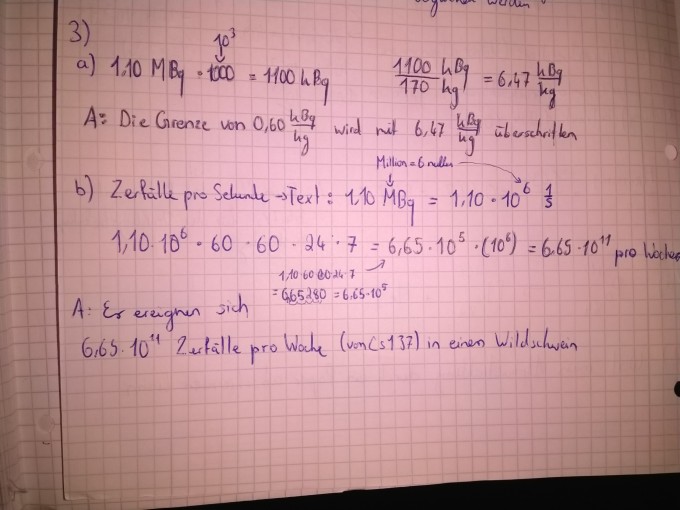 3)
10³
a) 1,10 MBq · 1000 = 1100 kBq
1100 kBq / 170 kg = 6,47 kBq/kg
A: Die Grenze von 0,60 kBq/kg wird mit 6,47 kBq/kg überschritten
Million = 6 nullen
b) Zerfälle pro Sekunde → Text: 1,10 MBq = 1,10 · 10⁶ 1/s
1,10 · 10⁶ · 60 · 60 · 24 · 7 = 6,65 · 10⁵ · (10⁶) = 6,65 · 10¹¹ pro Woche
1,10·60·60·24·7
= 665280 = 6,65·10⁵
A: Es ereignen sich
6,65 · 10¹¹ Zerfälle pro Woche (von Cs137) in einen Wildschwein